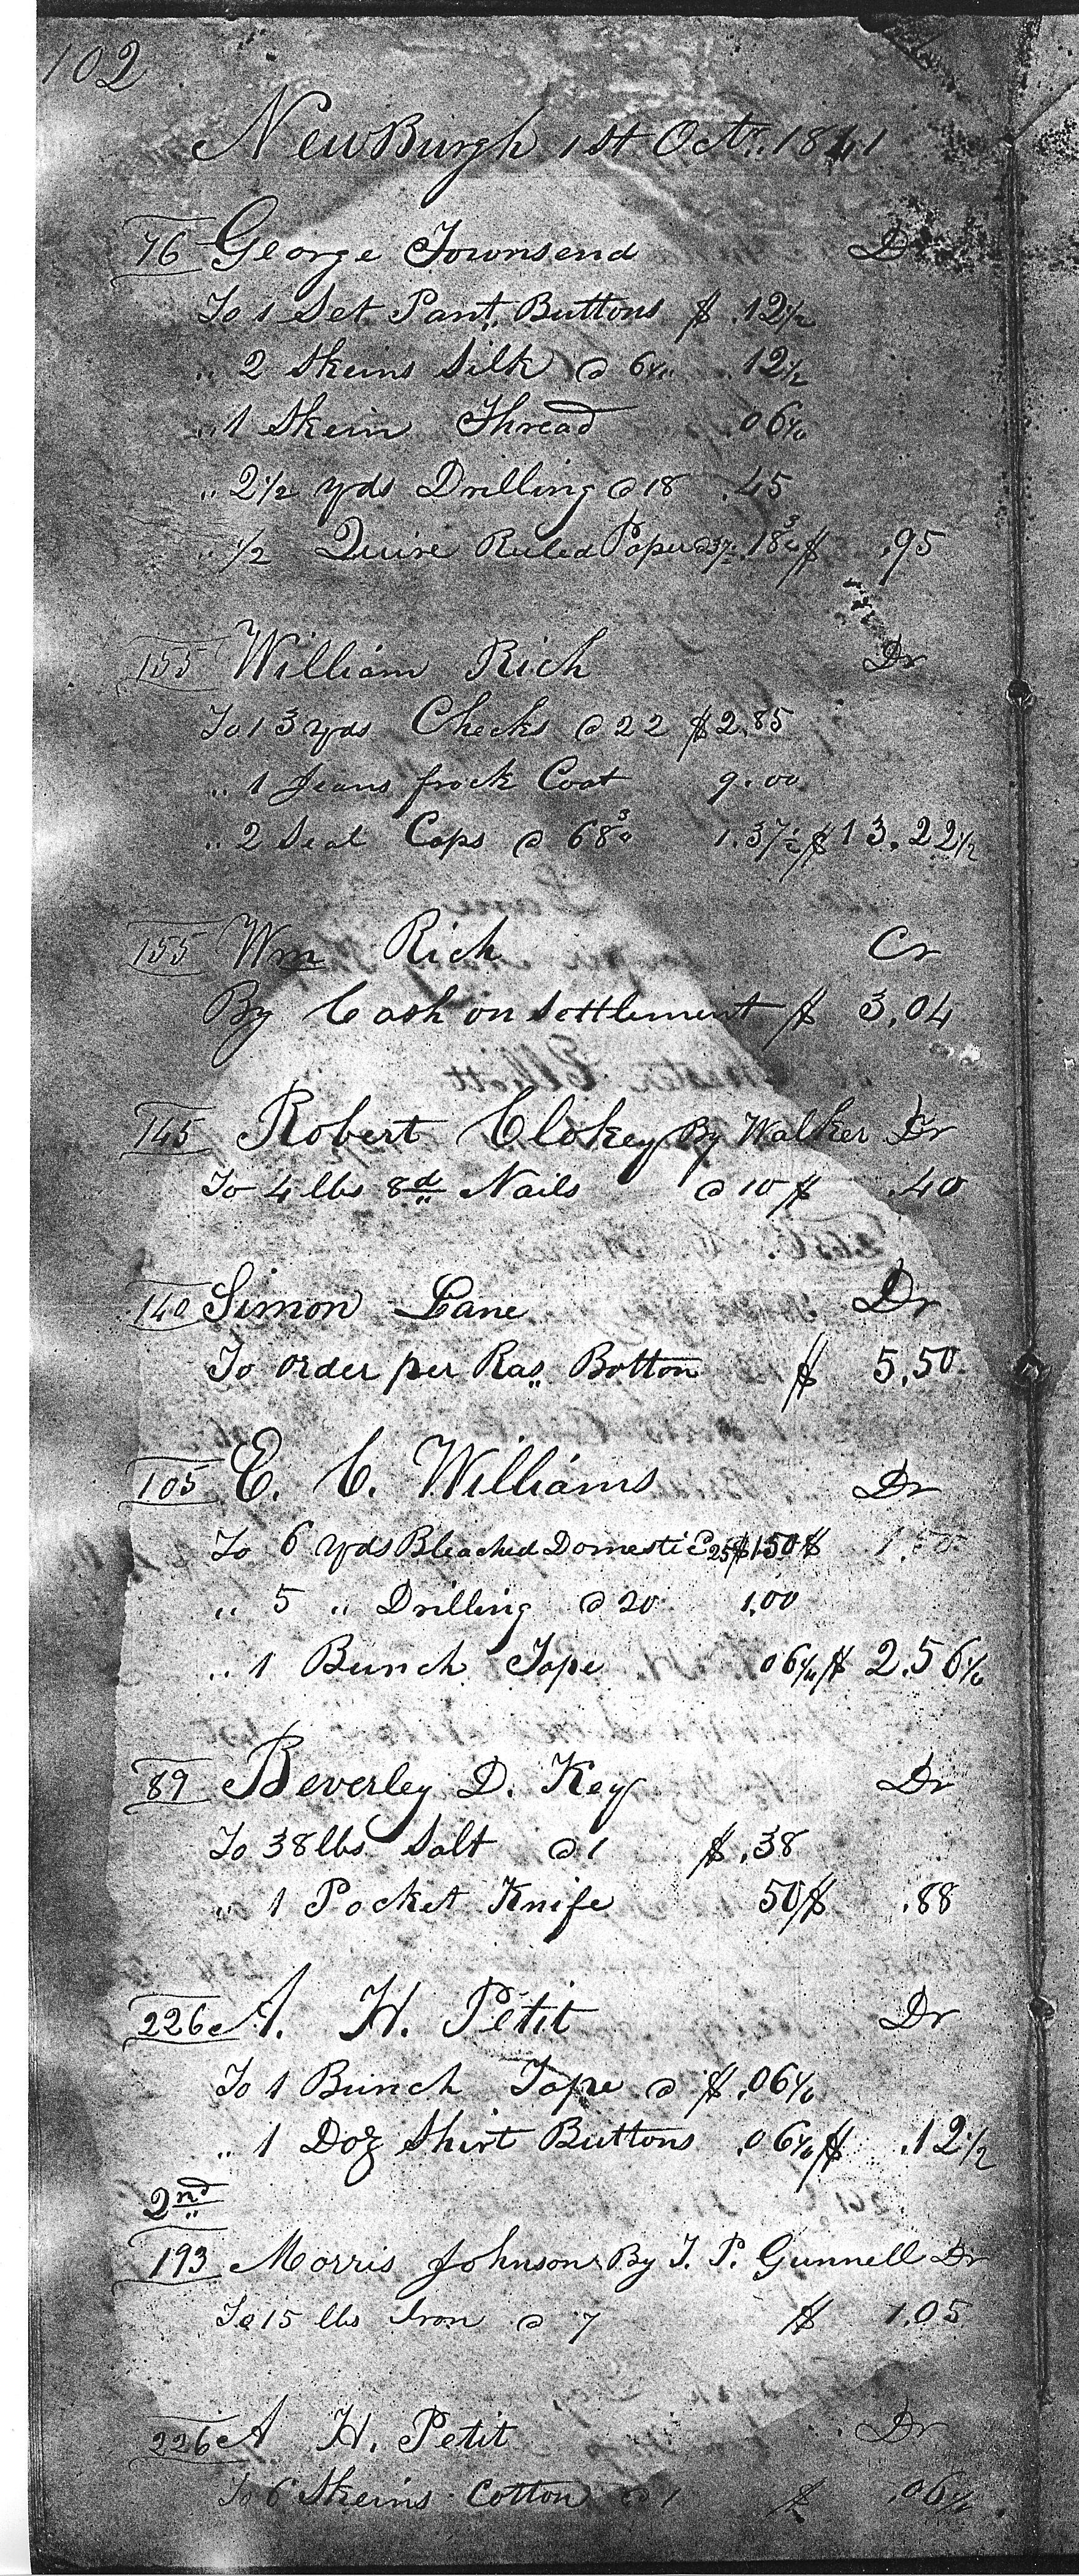 102
NewBurgh 1st Octr. 1841
76 George Townsend Dr
To 1 Set Pant. Buttons $ .12 1/2
" 2 Skeins Silk @ 6 1/4 " .12 1/2
" 1 Skein Thread .06 1/4
" 2 1/2 yds Drilling @ 18 .45
" 1/2 Quire Ruled Paper @ 37 1/2 .18 3/4 $ .95
155 William Rich Dr
To 13 yds Checks @ 22 $ 2.85
" 1 Jeans frock Coat 9.00
" 2 Seal Caps @ 68 3/4 1.37 1/2 $ 13.22 1/2
155 Wm Rich Cr
By Cash on settlement $ 3.04
145 Robert Clokey By Walker Dr
To 4 lbs 8d Nails @ 10 $ .40
140 Simon Lane Dr
To order per Ras. Botton $ 5.50
105 E. C. Williams Dr
To 6 yds Bleached Domestic @ 25 $ 1.50 $ 1.50
" 5 " Drilling @ 20 1.00
" 1 Bunch Tape 06 1/4 $ 2.56 1/4
89 Beverley D. Key Dr
To 38 lbs Salt @ 1 $ .38
" 1 Pocket Knife 50 $ .88
226 A. H. Petit Dr
To 1 Bunch Tape @ $ .06 1/4
" 1 Doz Shirt Buttons .06 1/4 $ .12 1/2
2nd
193 Morris Johnson By T. P. Gunnell Dr
To 15 lbs Iron @ 7 $ 1.05
226 A H. Petit Dr
To 6 Skeins Cotton @ 1 $ .06 1/4